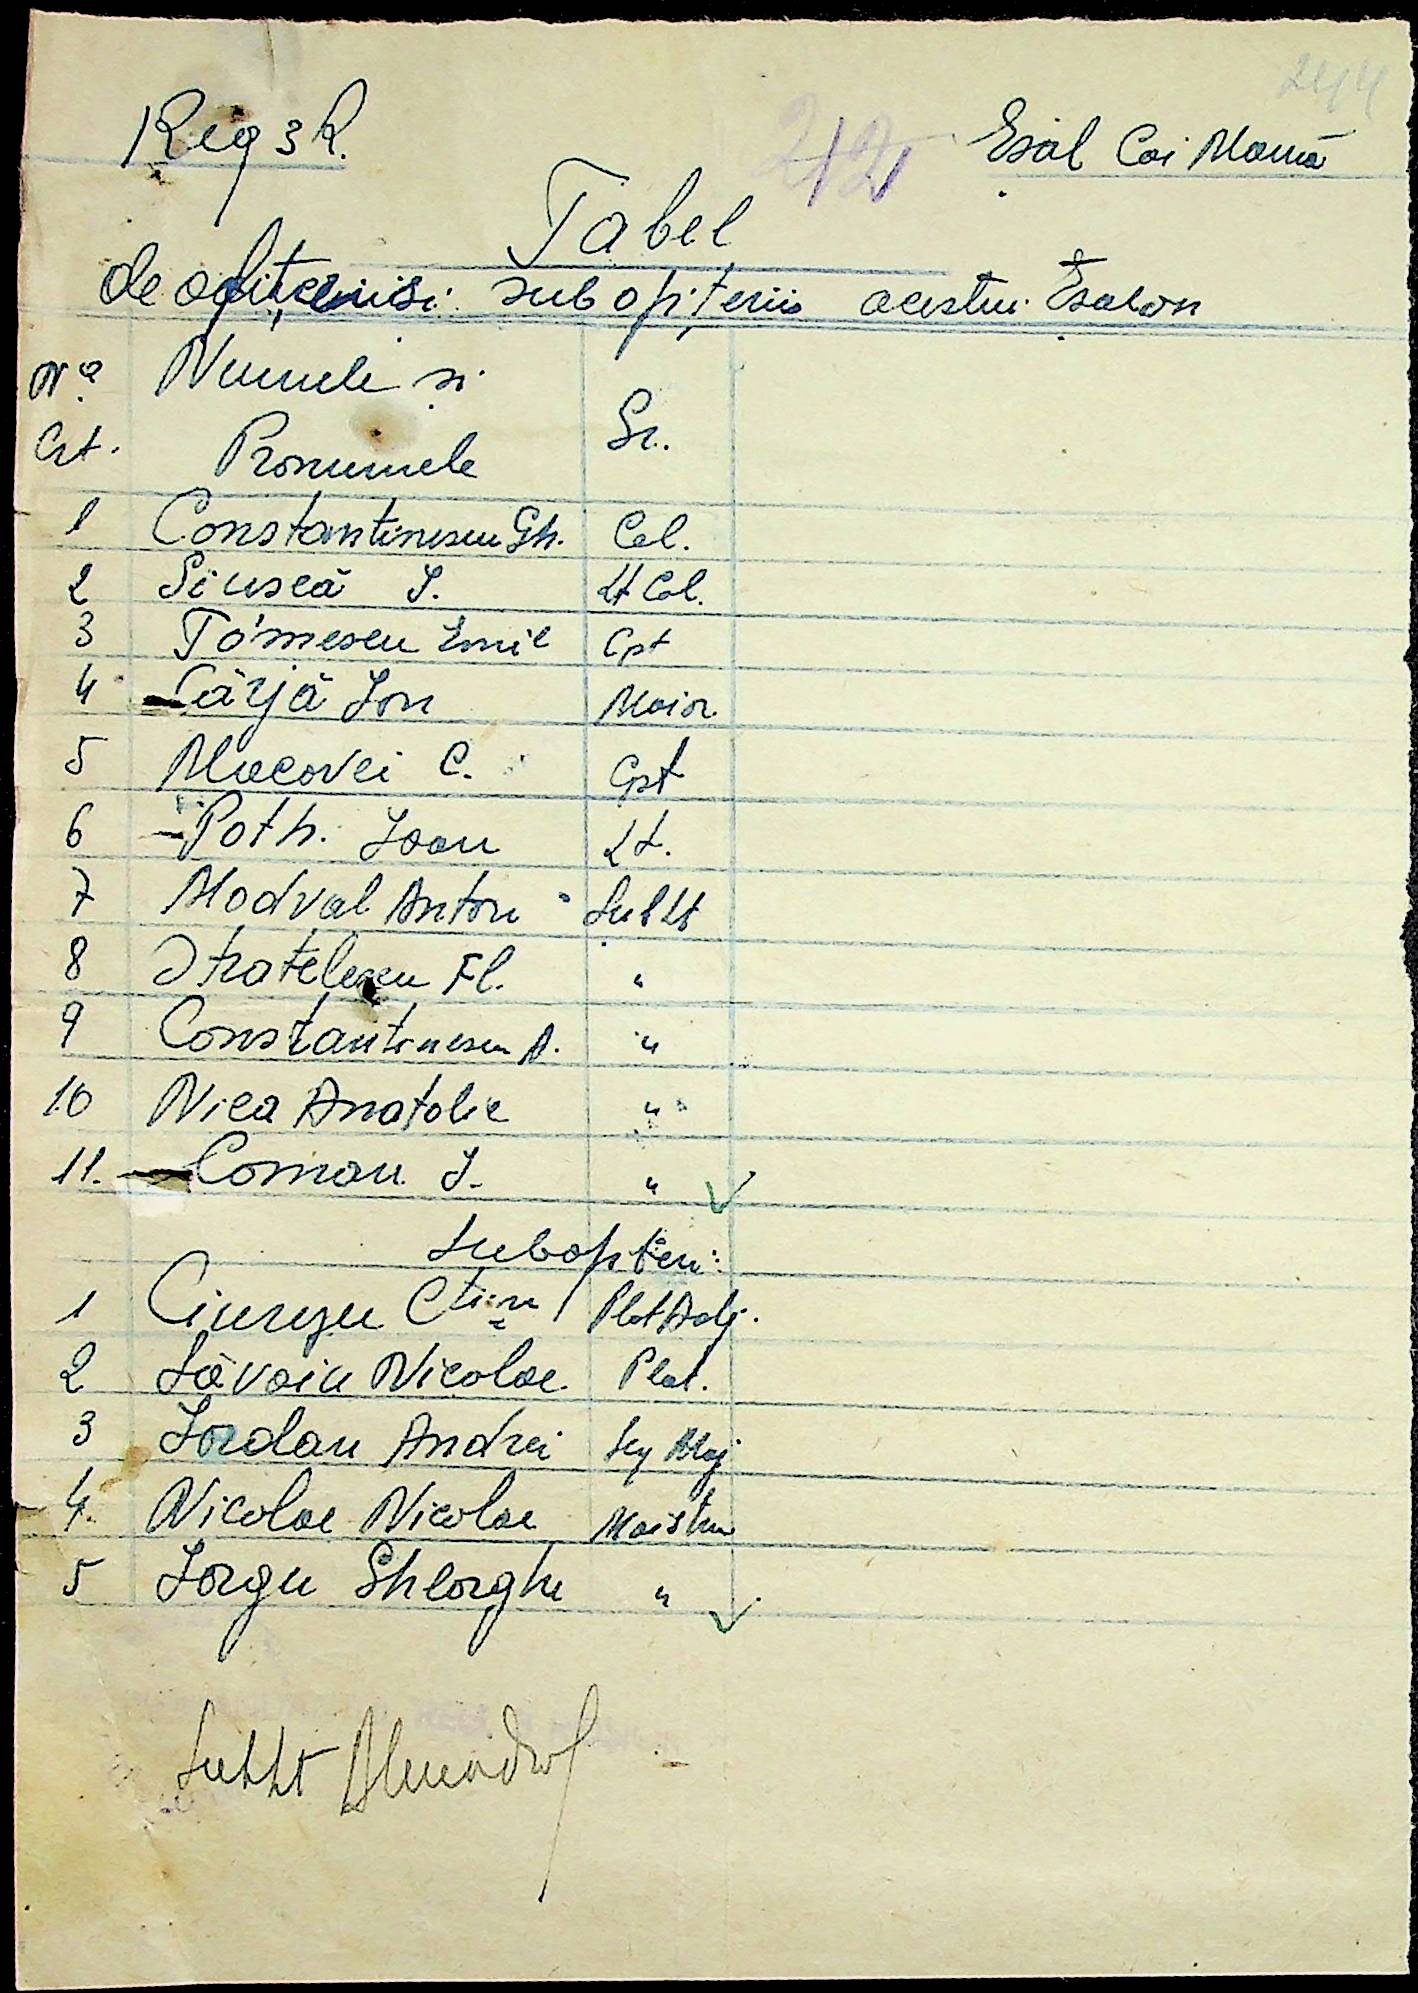 244
Reg 3 R. 212 Eșal Cai Mamă
Tabel
de ofițerii și subofițerii acestui Eșalon
Nº Numele și Gr.
Crt. Pronumele
1 Constantinescu Gh. Col.
2 Siuscă I. Lt Col.
3 Tomescu Emil Cpt
4 Cârjă Ion Maior
5 Macovei C. Cpt
6 Poth. Ioan Lt.
7 Modval Anton Sublt
8 Stratelescu Fl. "
9 Constantinescu A. "
10 Nica Anatolie "
11. Coman I. "
Subofțeri:
1 Ciurezu Ctin Plot Adj.
2 Săvoiu Nicolae Plot.
3 Iordan Andrei Serg Maj
4. Nicolae Nicolae Maistru
5 Iorgu Gheorghe "
Sublt